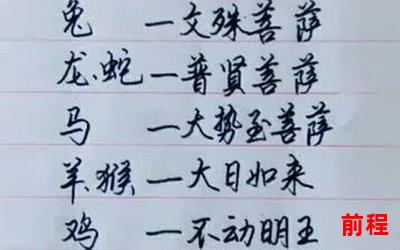 兔 一文殊菩萨
龙、蛇一普贤菩萨
马 一大势至菩萨
羊、猴一大日如来
鸡 一不动明王
前程